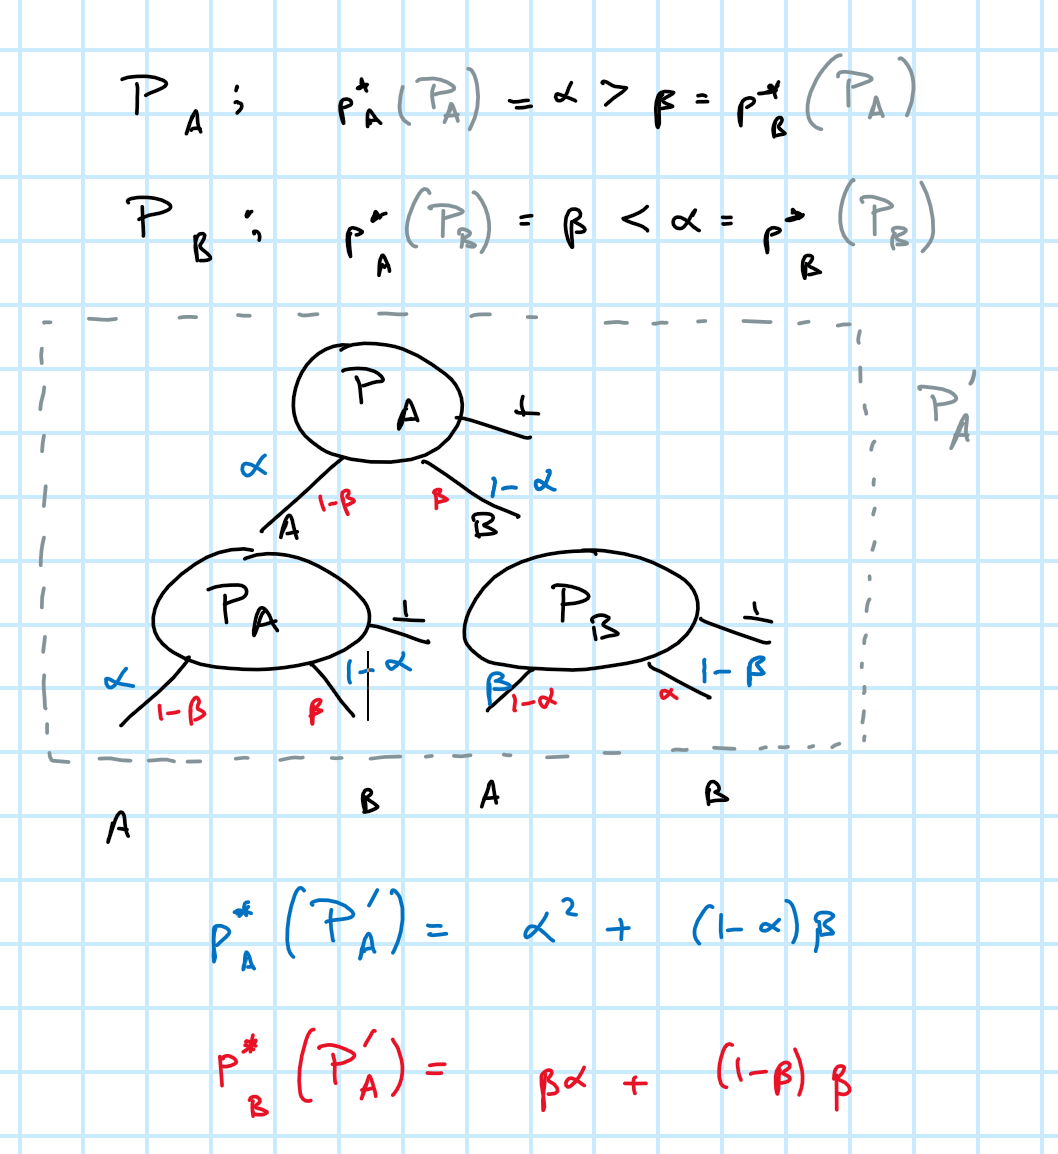 P_A : p*_A (P_A) = α > β = p*_B (P_A)
P_B : p*_A (P_B) = β < α = p*_B (P_B)
P_A ⊥ P'_A
α 1-β β 1-α
A B
P_A ⊥ P_B ⊥
α 1-β β 1-α β 1-α α 1-β
A B A B
p*_A (P'_A) = α² + (1-α) β
p*_B (P'_A) = βα + (1-β) β